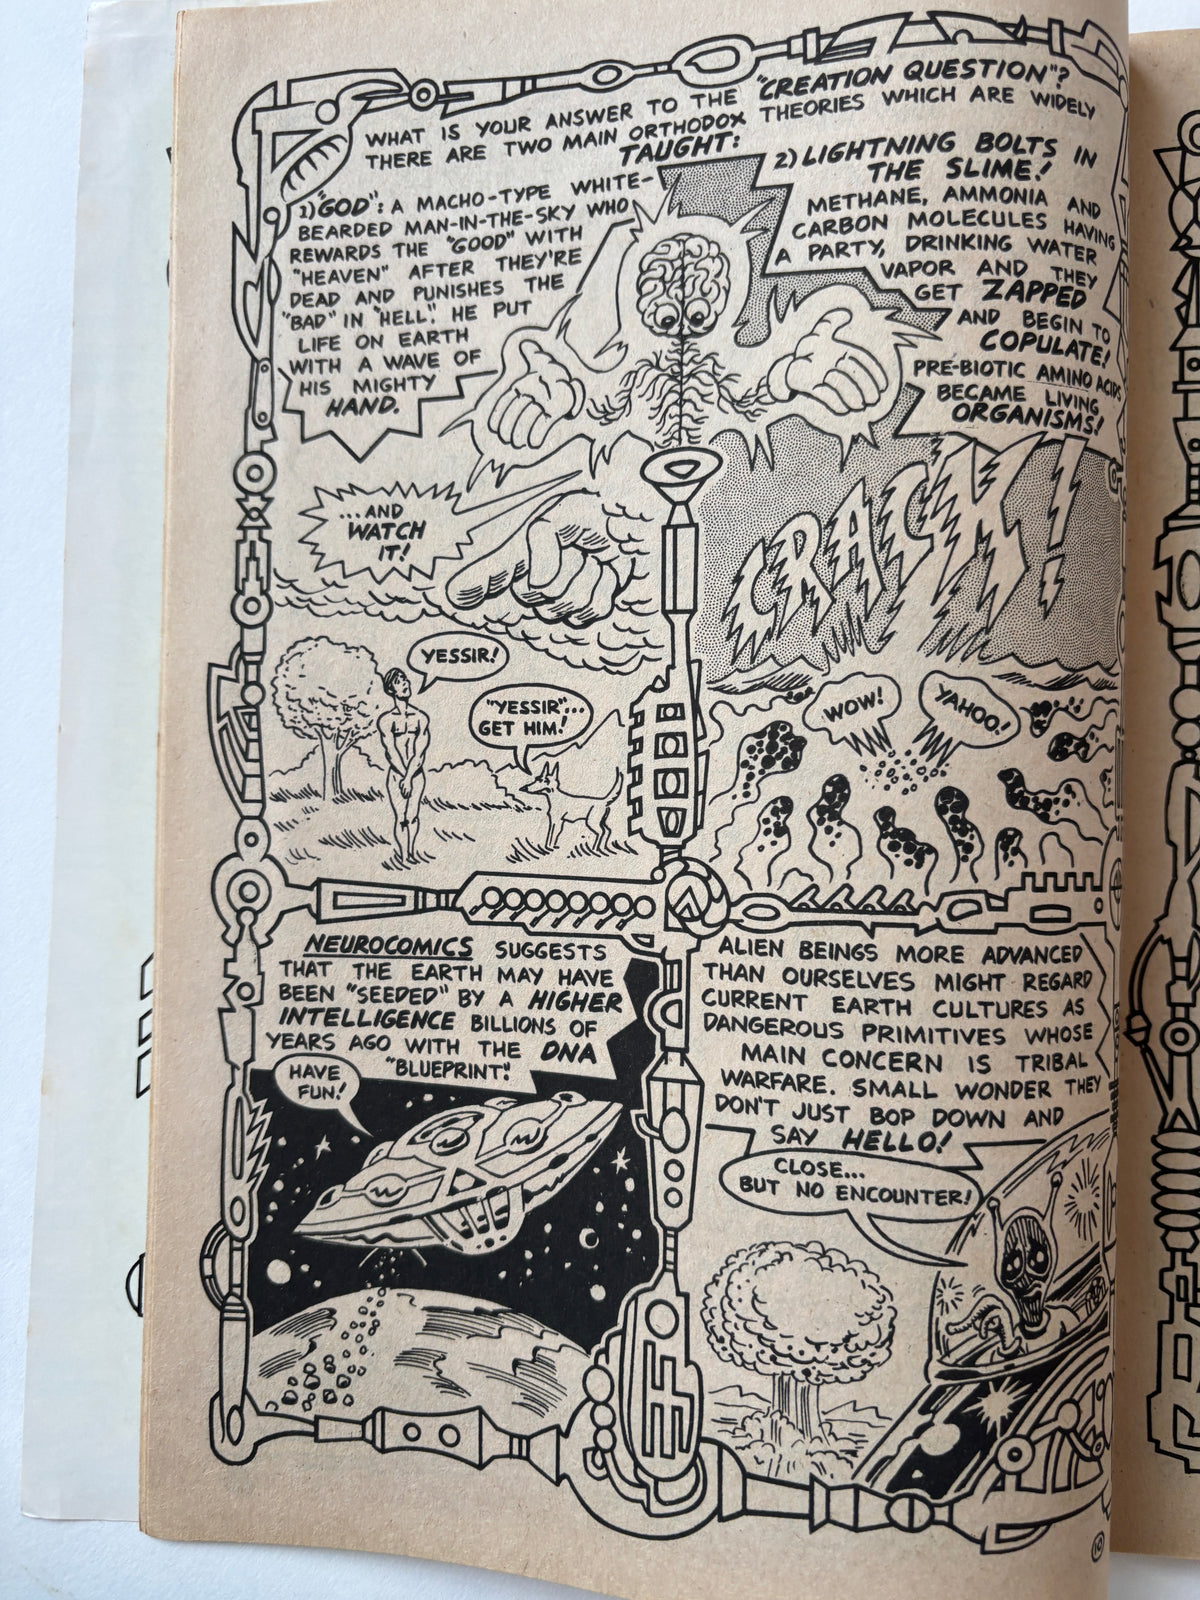 WHAT IS YOUR ANSWER TO THE "CREATION QUESTION"?
THERE ARE TWO MAIN ORTHODOX THEORIES WHICH ARE WIDELY
TAUGHT:
1) "GOD": A MACHO-TYPE WHITE-
BEARDED MAN-IN-THE-SKY WHO
REWARDS THE "GOOD" WITH
"HEAVEN" AFTER THEY'RE
DEAD AND PUNISHES THE
"BAD" IN "HELL". HE PUT
LIFE ON EARTH
WITH A WAVE OF
HIS MIGHTY
HAND.
2) LIGHTNING BOLTS IN
THE SLIME!
METHANE, AMMONIA AND
CARBON MOLECULES HAVING
A PARTY, DRINKING WATER
VAPOR AND THEY
GET ZAPPED
AND BEGIN TO
COPULATE!
PRE-BIOTIC AMINO ACIDS
BECAME LIVING
ORGANISMS!
...AND
WATCH
IT!
YESSIR!
"YESSIR"...
GET HIM!
CRACK!
WOW!
YAHOO!
NEUROCOMICS SUGGESTS
THAT THE EARTH MAY HAVE
BEEN "SEEDED" BY A HIGHER
INTELLIGENCE BILLIONS OF
YEARS AGO WITH THE DNA
"BLUEPRINT".
HAVE
FUN!
ALIEN BEINGS MORE ADVANCED
THAN OURSELVES MIGHT REGARD
CURRENT EARTH CULTURES AS
DANGEROUS PRIMITIVES WHOSE
MAIN CONCERN IS TRIBAL
WARFARE. SMALL WONDER THEY
DON'T JUST BOP DOWN AND
SAY HELLO!
CLOSE...
BUT NO ENCOUNTER!
10